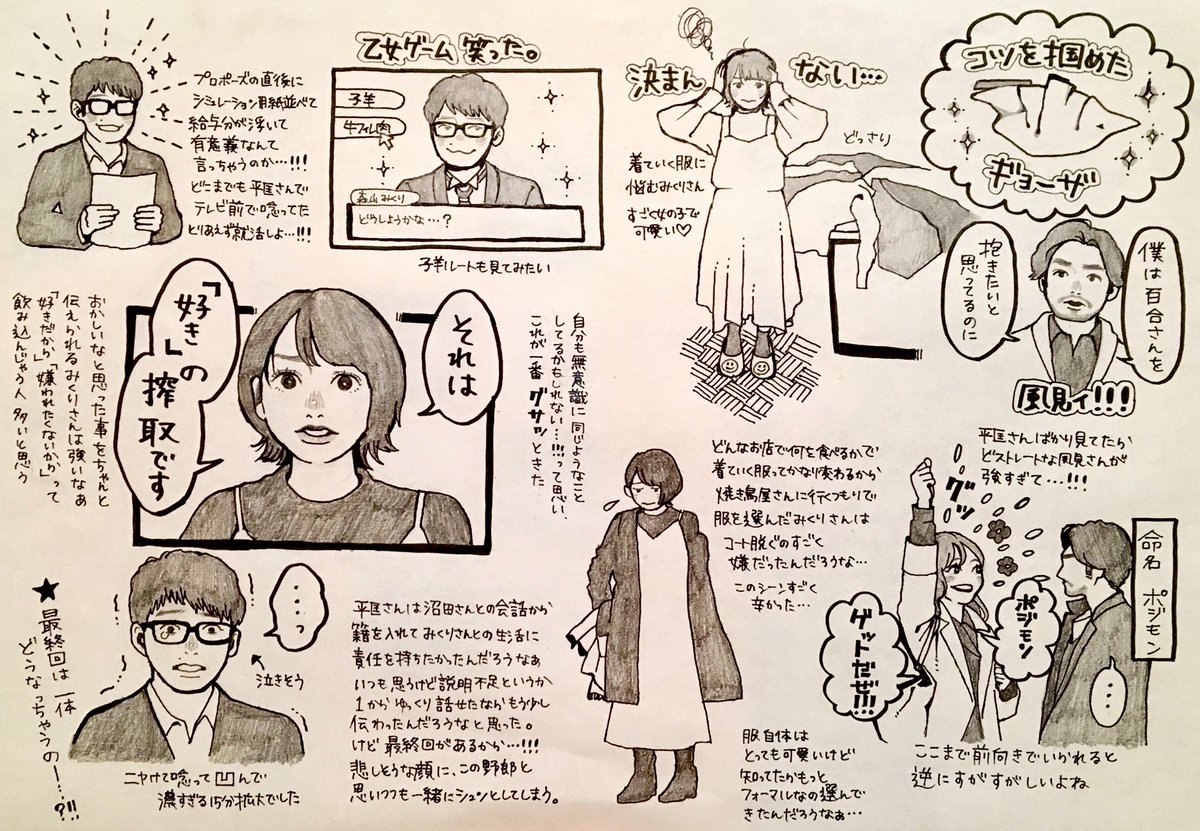 プロポーズの直後に
シミュレーション用紙並べて
給与分が浮いて
有意義なんて
言っちゃうのか…!!!
どこまでも平匡さんで
テレビ前で唸ってた
とりあえず就活しよ…!!!
乙女ゲーム 笑った。
子羊
牛フィレ肉
森山みくり
どうしようかな…?
子羊ルートも見てみたい
決まんない…
着ていく服に
悩むみくりさん
すごく女の子で
可愛い♡
どっさり
コツを掴めた
ギョーザ
僕は百合さんを
抱きたいと
思ってるのに
風見ィ!!!
それは
「好き」の
搾取です
自分も無意識に同じようなこと
してるかもしれない…!!!って思い、
これが一番グサッときた
おかしいなと思った事をちゃんと
伝えられるみくりさんは強いなあ
「好きだから」「嫌われたくないから」って
飲み込んじゃう人 多いと思う
どんなお店で何を食べるかで
着ていく服ってかなり変わるから
焼き鳥屋さんに行くつもりで
服を選んだみくりさんは
コート脱ぐのすごく
嫌だったんだろうな…
このシーンすごく
辛かった…
服自体は
とっても可愛いけど
知ってたらもっと
フォーマルなの選んで
きたんだろうなぁ…
平匡さんばかり見てたから
どストレートな風見さんが
強すぎて…!!!
グッ
命名 ポジモン
ポジモン
ゲットだぜ!!!
…
ここまで前向きでいかれると
逆にすがすがしいよね
…っ
泣きそう
ニヤけて唸って凹んで
濃すぎる15分拡大でした
平匡さんは沼田さんとの会話から
籍を入れてみくりさんとの生活に
責任を持ちたかったんだろうなぁ
いつも思うけど説明不足というか
1からゆっくり話せたならもう少し
伝わったんだろうなと思った。
けど最終回があるから…!!!
悲しそうな顔に、この野郎と
思いつつも一緒にシュンとしてしまう。
★最終回は一体
どうなっちゃうのー…?!!